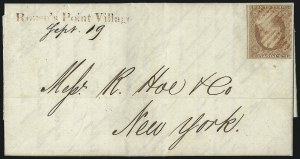 Rouse's Point Village
Sept. 19
Messrs. R. Hoe & Co
New York.